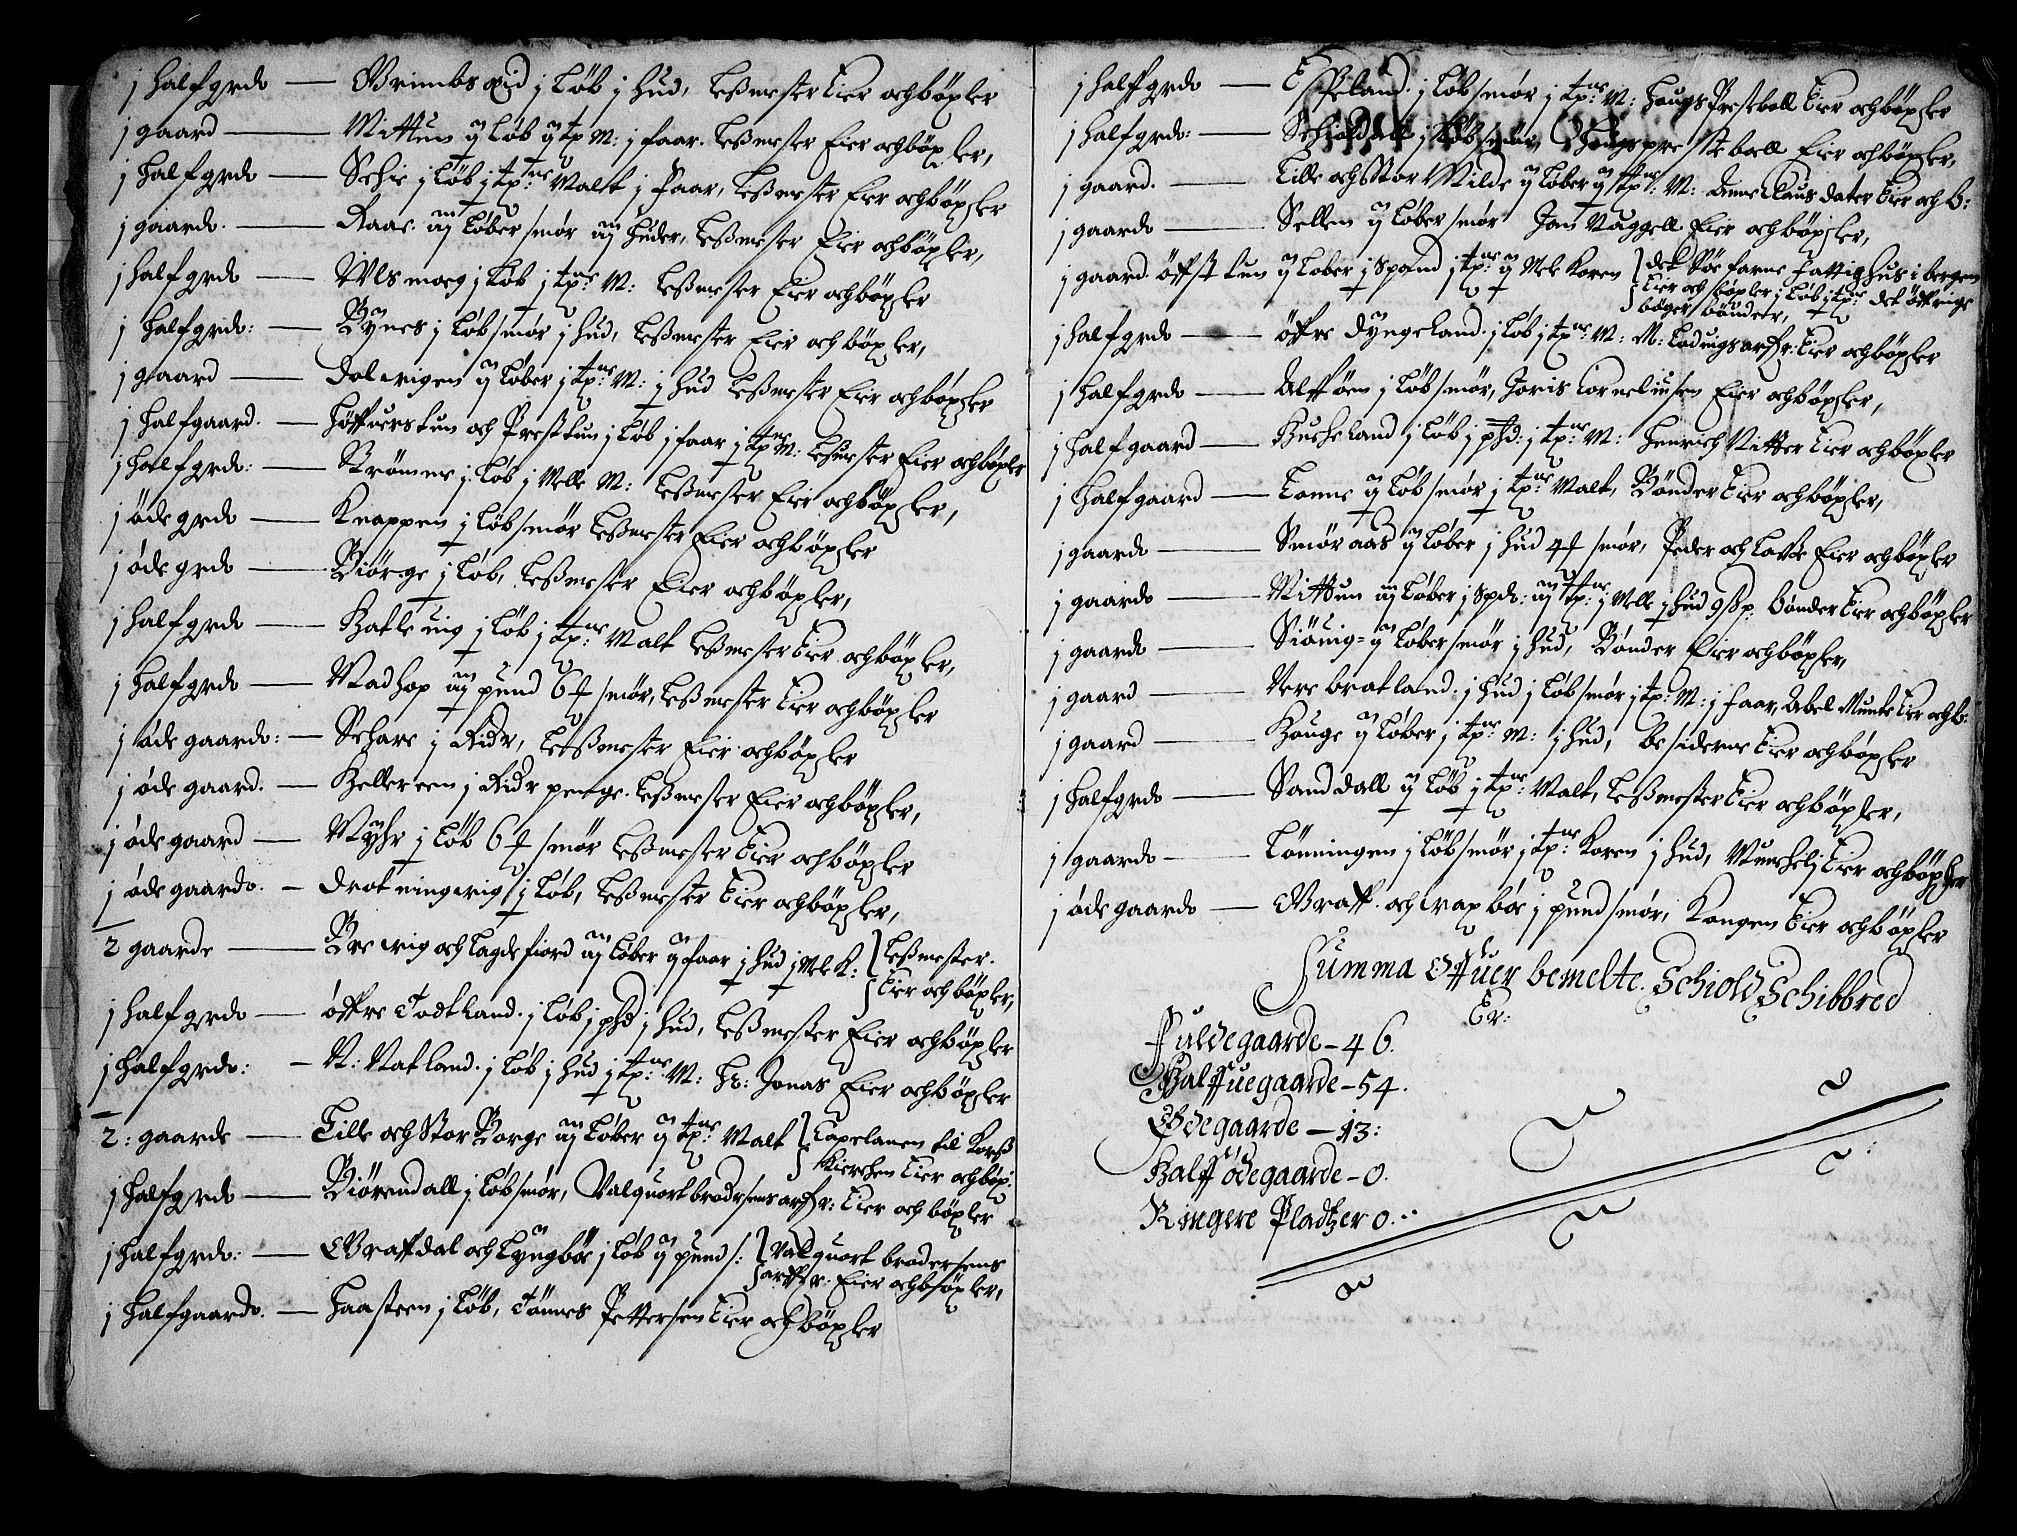 j halfgrd — Grimbs eid j Løb j hud, Leßmester Eier och böxler
j gaard — Mittun ij Løb ij tp M: j faar. Leßmester Eier och böxler,
j halfgrd — Schie j Løb j tp:ne Malt j Faar, Leßmester Eier och böxler
j gaard. — Raae iij Løber smør iij huder, Leßmester Eier och böxler,
j halfgrd — Ulsmoeg j Løb j tp:ne M: Leßmester Eier och böxler
j halfgrd: — Bynes j Løb smør j hud, Leßmester Eier och böxler,
j gaard — Dolwigen ij Løber j tp:ne M: j hud Leßmester Eier och böxler
j halfgaard. — Høffuerstun och Presttun j Løb j faar j tp:ne M: Leßmester Eier och böxler
j halfgrd: — Strømme j Løb j Melle M: Leßmester Eier och böxler,
j øde grd — Knappen j Løb smør Leßmester Eier och böxler
j øde grd — Biørge j Løb, Leßmester Eier och böxler,
j halfgrd — Hatleuig j Løb j tp:ne Malt Leßmester Eier och böxler,
j halfgrd — Madhop iij pund 6 ₰ smør, Leßmester Eier och böxler
j øde gaard: — Schare j Ridr, Leßmester Eier och böxler
j øde gaard. — Hellereen j Ridr penge. Leßmester Eier och böxler,
j øde gaard — Myhr j Løb 6 ₰ smør Leßmester Eier och böxler
j øde gaard. — Drotningwig j Løb, Leßmester Eier och böxler,
2 gaarde — Brewig och Lagdefiord iij Løber ij faar j hud j Mele K: } Leßmester.
Eier och böxler,
j halfgrd — øffre Todtland. j Løb j phd j hud, Leßmester Eier och böxler
j halfgrd: — N: Natland. j Løb j hud j tp:ne M: Hr: Jonas Eier och böxler
2: gaarde — Lille och Stor Borge iij Løber ij tp:ne Malt } Capelanen til Korß
Kierchen Eier och böx:
j halfgrd — Biørendall j Løb smør, Valquort brodrsens arffr: Eier och böxler
j halfgrd: — Graffdal och Lyngbøe j Løb ij pund s: } Valquort brodersens
arffr. Eier och böxler,
j halfgaard. — Haasteen j Løb, Tønnes Pettersen Eier och böxler
j halfgrd — Espeland. j Løb smør j tp:ne M: Haugs Prestboll Eier och böxler
j halfgrd: — Schioldall j Løb smør, Haugs prestboell Eier och böxler,
j gaard. — Lille och Stor Milde ij Løber ij tp:ne M: Anne Claus dater Eier och b:
j gaard — Sellen ij Løber smør Jan Naggell Eier och böxler,
j gaard. øffsttun ij Løber j spand j tp:ne ij Mele Koren } det Søefarne Fattighus i bergen
Eier och böxler j Løb j tp:ne det øffrige
böger bønder,
j halfgrd — øffre Dyngeland. j Løb j tp:ne M: M: Ludvigs arffr: Eier och böxler
j halfgrd — Alfføen j Løb smør, Joris Corneliusen Eier och böxler,
j halfgaard — Hucheland j Løb j phd: j tp:ne M: Henrich Vitter Eier och böxler
j halfgaard — Lonne ij Løb smør j tp:ne Malt, Bønder Eier och böxler,
j gaard — Smøraas ij Løber j hud 4 ₰ smør, Peder och Lasse Eier och böxler
j gaard — Mittun iij Løber j spd: iij tp:ne j Melle j hud 9 ßp: bønder Eier och böxler
j gaard — Siöuig= ij Løber smør j hud, Bønder Eier och böxler,
j gaard — Nere bratland. j hud j Løb smør j tp: M: j faar, Abel Munte Eier och b:
j gaard — Hauge ij Løber j tp:ne M: j hud, besiderne Eier och böxler
j halfgrd — Sanddall ij Løb j tp:ne Malt, Leßmester Eier och böxler,
j gaard — Lønningen j Løb smør j tp:ne Koren j hud, Munchelj Eier och böxler
j øde gaard — Graff och Craxbøe j pund smør, Kongen Eier och böxler
Summa Offuerbemelte. Schiold Schibbred
Er:
Fuldegaarde – 46.
Halffuegaarde – 54.
Ødegaarde – 13:
Halff ødegaarde – 0.
Ringere Pladtzer 0.